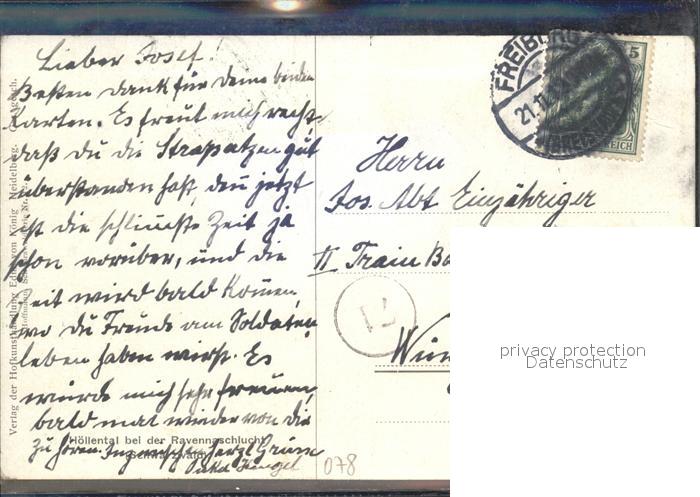 Lieber Josef!
Besten Dank für Deine beiden
Karten. Es freut mich recht,
daß Du die Strapatzen gut
überstanden hast, denn jetzt
ist die schlimmste Zeit ja
schon vorüber, und die
Zeit wird bald kommen,
wo Du Freude am Soldaten-
leben haben wirst. Es
würde mich sehr freuen,
bald mal wieder von Dir
zu hören. Inzwischen herzl. Grüsse
Höllental bei der Ravennaschlucht
(Schwarzwald)
Verlag der Hofkunsthandlung Edm. von König, Heidelberg.
FREIBURG
21.11.
(BREISGAU)
5
REICH
Herrn
Jos. Abt Einjähriger
II Train Ba
71
078
privacy protection
Datenschutz